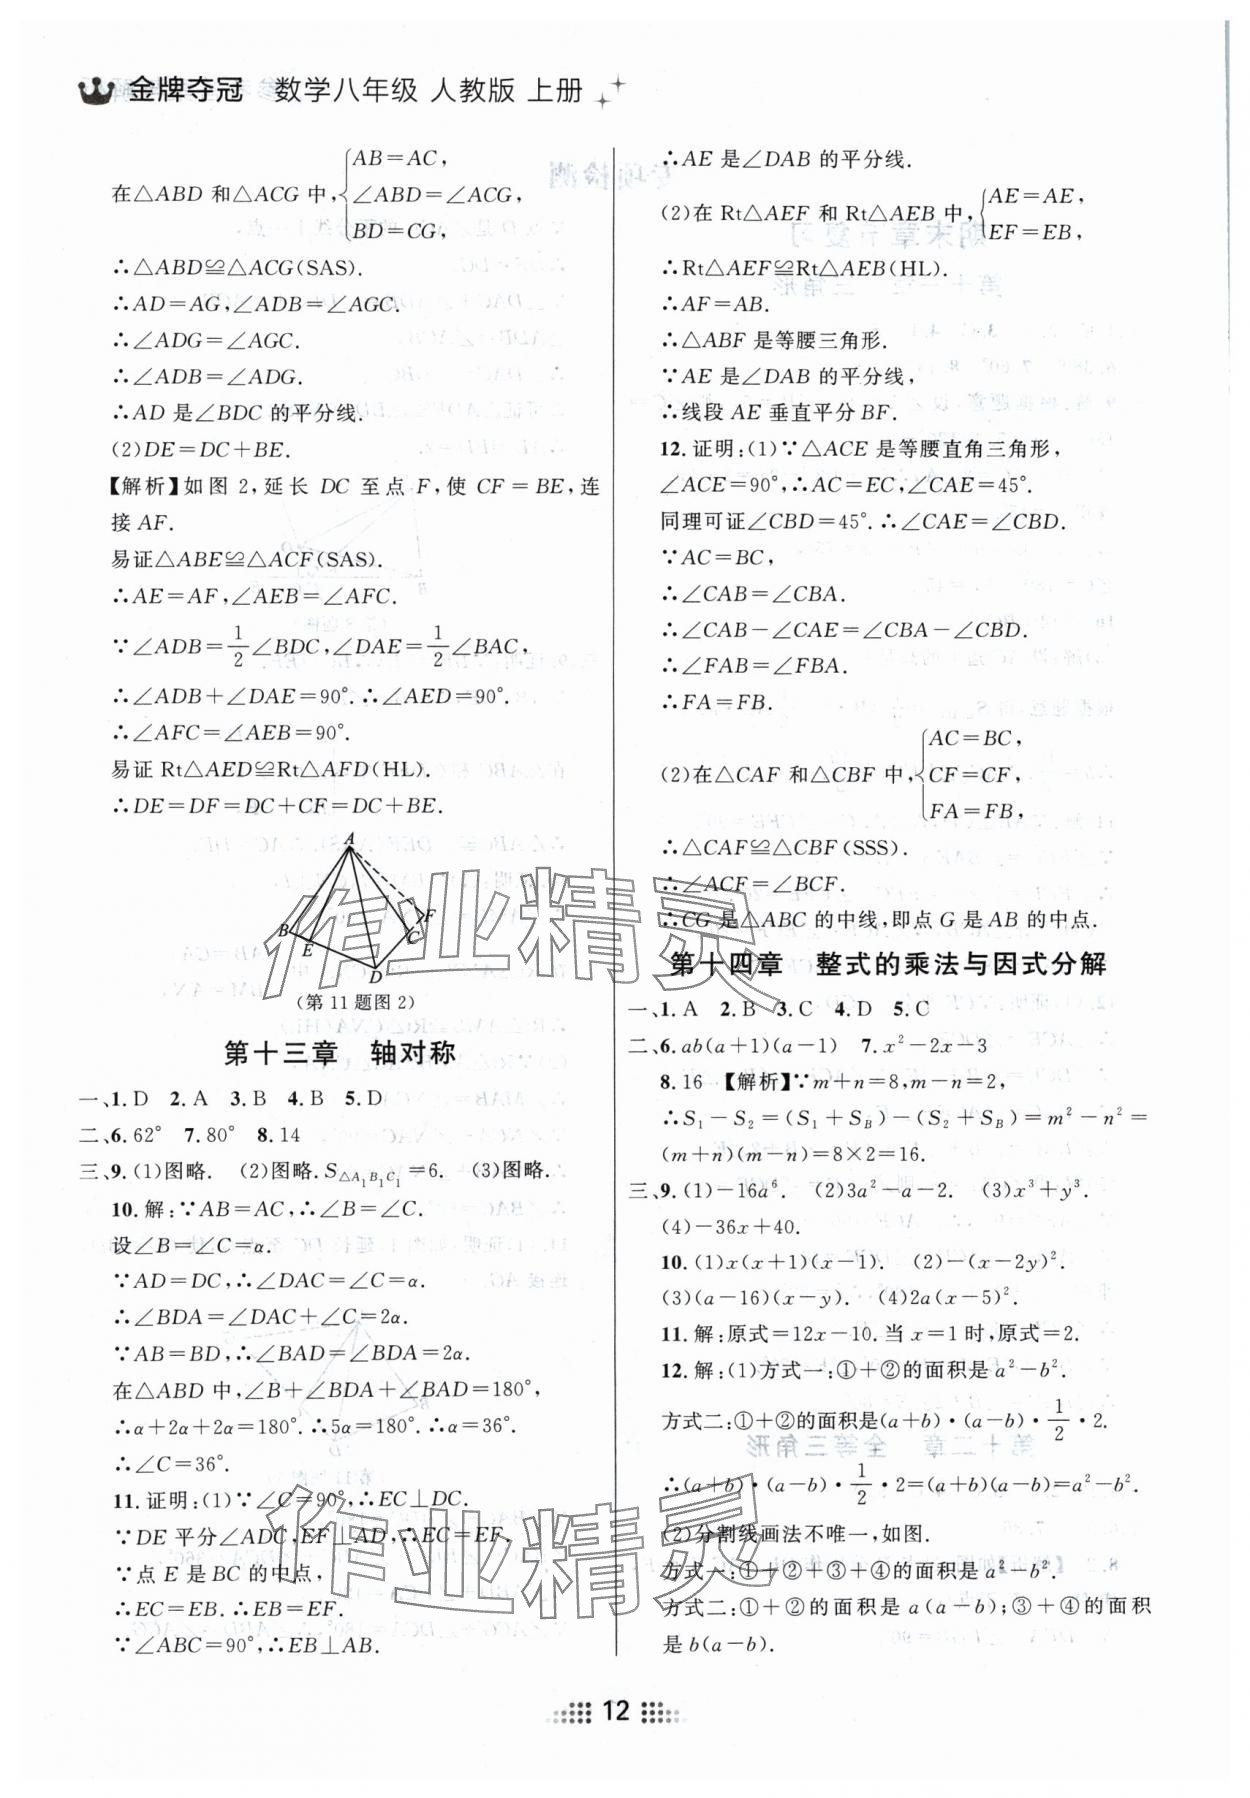 金牌夺冠 数学八年级 人教版 上册
在△ABD 和△ACG 中,{AB=AC,
∠ABD=∠ACG,
BD=CG,
∴△ABD≌△ACG(SAS).
∴AD=AG,∠ADB=∠AGC.
∴∠ADG=∠AGC.
∴∠ADB=∠ADG.
∴AD 是∠BDC 的平分线.
(2)DE=DC+BE.
【解析】如图 2,延长 DC 至点 F,使 CF=BE,连
接 AF.
易证△ABE≌△ACF(SAS).
∴AE=AF,∠AEB=∠AFC.
∵∠ADB=1/2∠BDC,∠DAE=1/2∠BAC,
∴∠ADB+∠DAE=90°.∴∠AED=90°.
∴∠AFC=∠AEB=90°.
易证 Rt△AED≌Rt△AFD(HL).
∴DE=DF=DC+CF=DC+BE.
A
B
E
D
C
F
(第 11 题图 2)
第十三章 轴对称
一、1.D 2.A 3.B 4.B 5.D
二、6.62° 7.80° 8.14
三、9.(1)图略. (2)图略.S△A₁B₁C₁=6. (3)图略.
10.解:∵AB=AC,∴∠B=∠C.
设∠B=∠C=α.
∵AD=DC,∴∠DAC=∠C=α.
∴∠BDA=∠DAC+∠C=2α.
∵AB=BD,∴∠BAD=∠BDA=2α.
在△ABD 中,∠B+∠BDA+∠BAD=180°,
∴α+2α+2α=180°.∴5α=180°.∴α=36°.
∴∠C=36°.
11.证明:(1)∵∠C=90°,∴EC⊥DC.
∵DE 平分∠ADC,EF⊥AD,∴EC=EF.
∵点 E 是 BC 的中点,
∴EC=EB.∴EB=EF.
∵∠ABC=90°,∴EB⊥AB.
∴AE 是∠DAB 的平分线.
(2)在 Rt△AEF 和 Rt△AEB 中,{AE=AE,
EF=EB,
∴Rt△AEF≌Rt△AEB(HL).
∴AF=AB.
∴△ABF 是等腰三角形.
∵AE 是∠DAB 的平分线,
∴线段 AE 垂直平分 BF.
12.证明:(1)∵△ACE 是等腰直角三角形,
∠ACE=90°,∴AC=EC,∠CAE=45°.
同理可证∠CBD=45°.∴∠CAE=∠CBD.
∵AC=BC,
∴∠CAB=∠CBA.
∴∠CAB-∠CAE=∠CBA-∠CBD.
∴∠FAB=∠FBA.
∴FA=FB.
(2)在△CAF 和△CBF 中,{AC=BC,
CF=CF,
FA=FB,
∴△CAF≌△CBF(SSS).
∴∠ACF=∠BCF.
∴CG 是△ABC 的中线,即点 G 是 AB 的中点.
第十四章 整式的乘法与因式分解
一、1.A 2.B 3.C 4.D 5.C
二、6.ab(a+1)(a-1) 7.x²-2x-3
8.16 【解析】∵m+n=8,m-n=2,
∴S₁-S₂=(S₁+S_B)-(S₂+S_B)=m²-n²=
(m+n)(m-n)=8×2=16.
三、9.(1)-16a⁶. (2)3a²-a-2. (3)x³+y³.
(4)-36x+40.
10.(1)x(x+1)(x-1). (2)-(x-2y)².
(3)(a-16)(x-y). (4)2a(x-5)².
11.解:原式=12x-10.当 x=1 时,原式=2.
12.解:(1)方式一:①+②的面积是 a²-b².
方式二:①+②的面积是(a+b)·(a-b)·1/2·2.
∴(a+b)·(a-b)·1/2·2=(a+b)(a-b)=a²-b².
(2)分割线画法不唯一,如图.
方式一:①+②+③+④的面积是 a²-b².
方式二:①+②的面积是 a(a-b);③+④的面积
是 b(a-b).
作业精灵
作业精灵
12